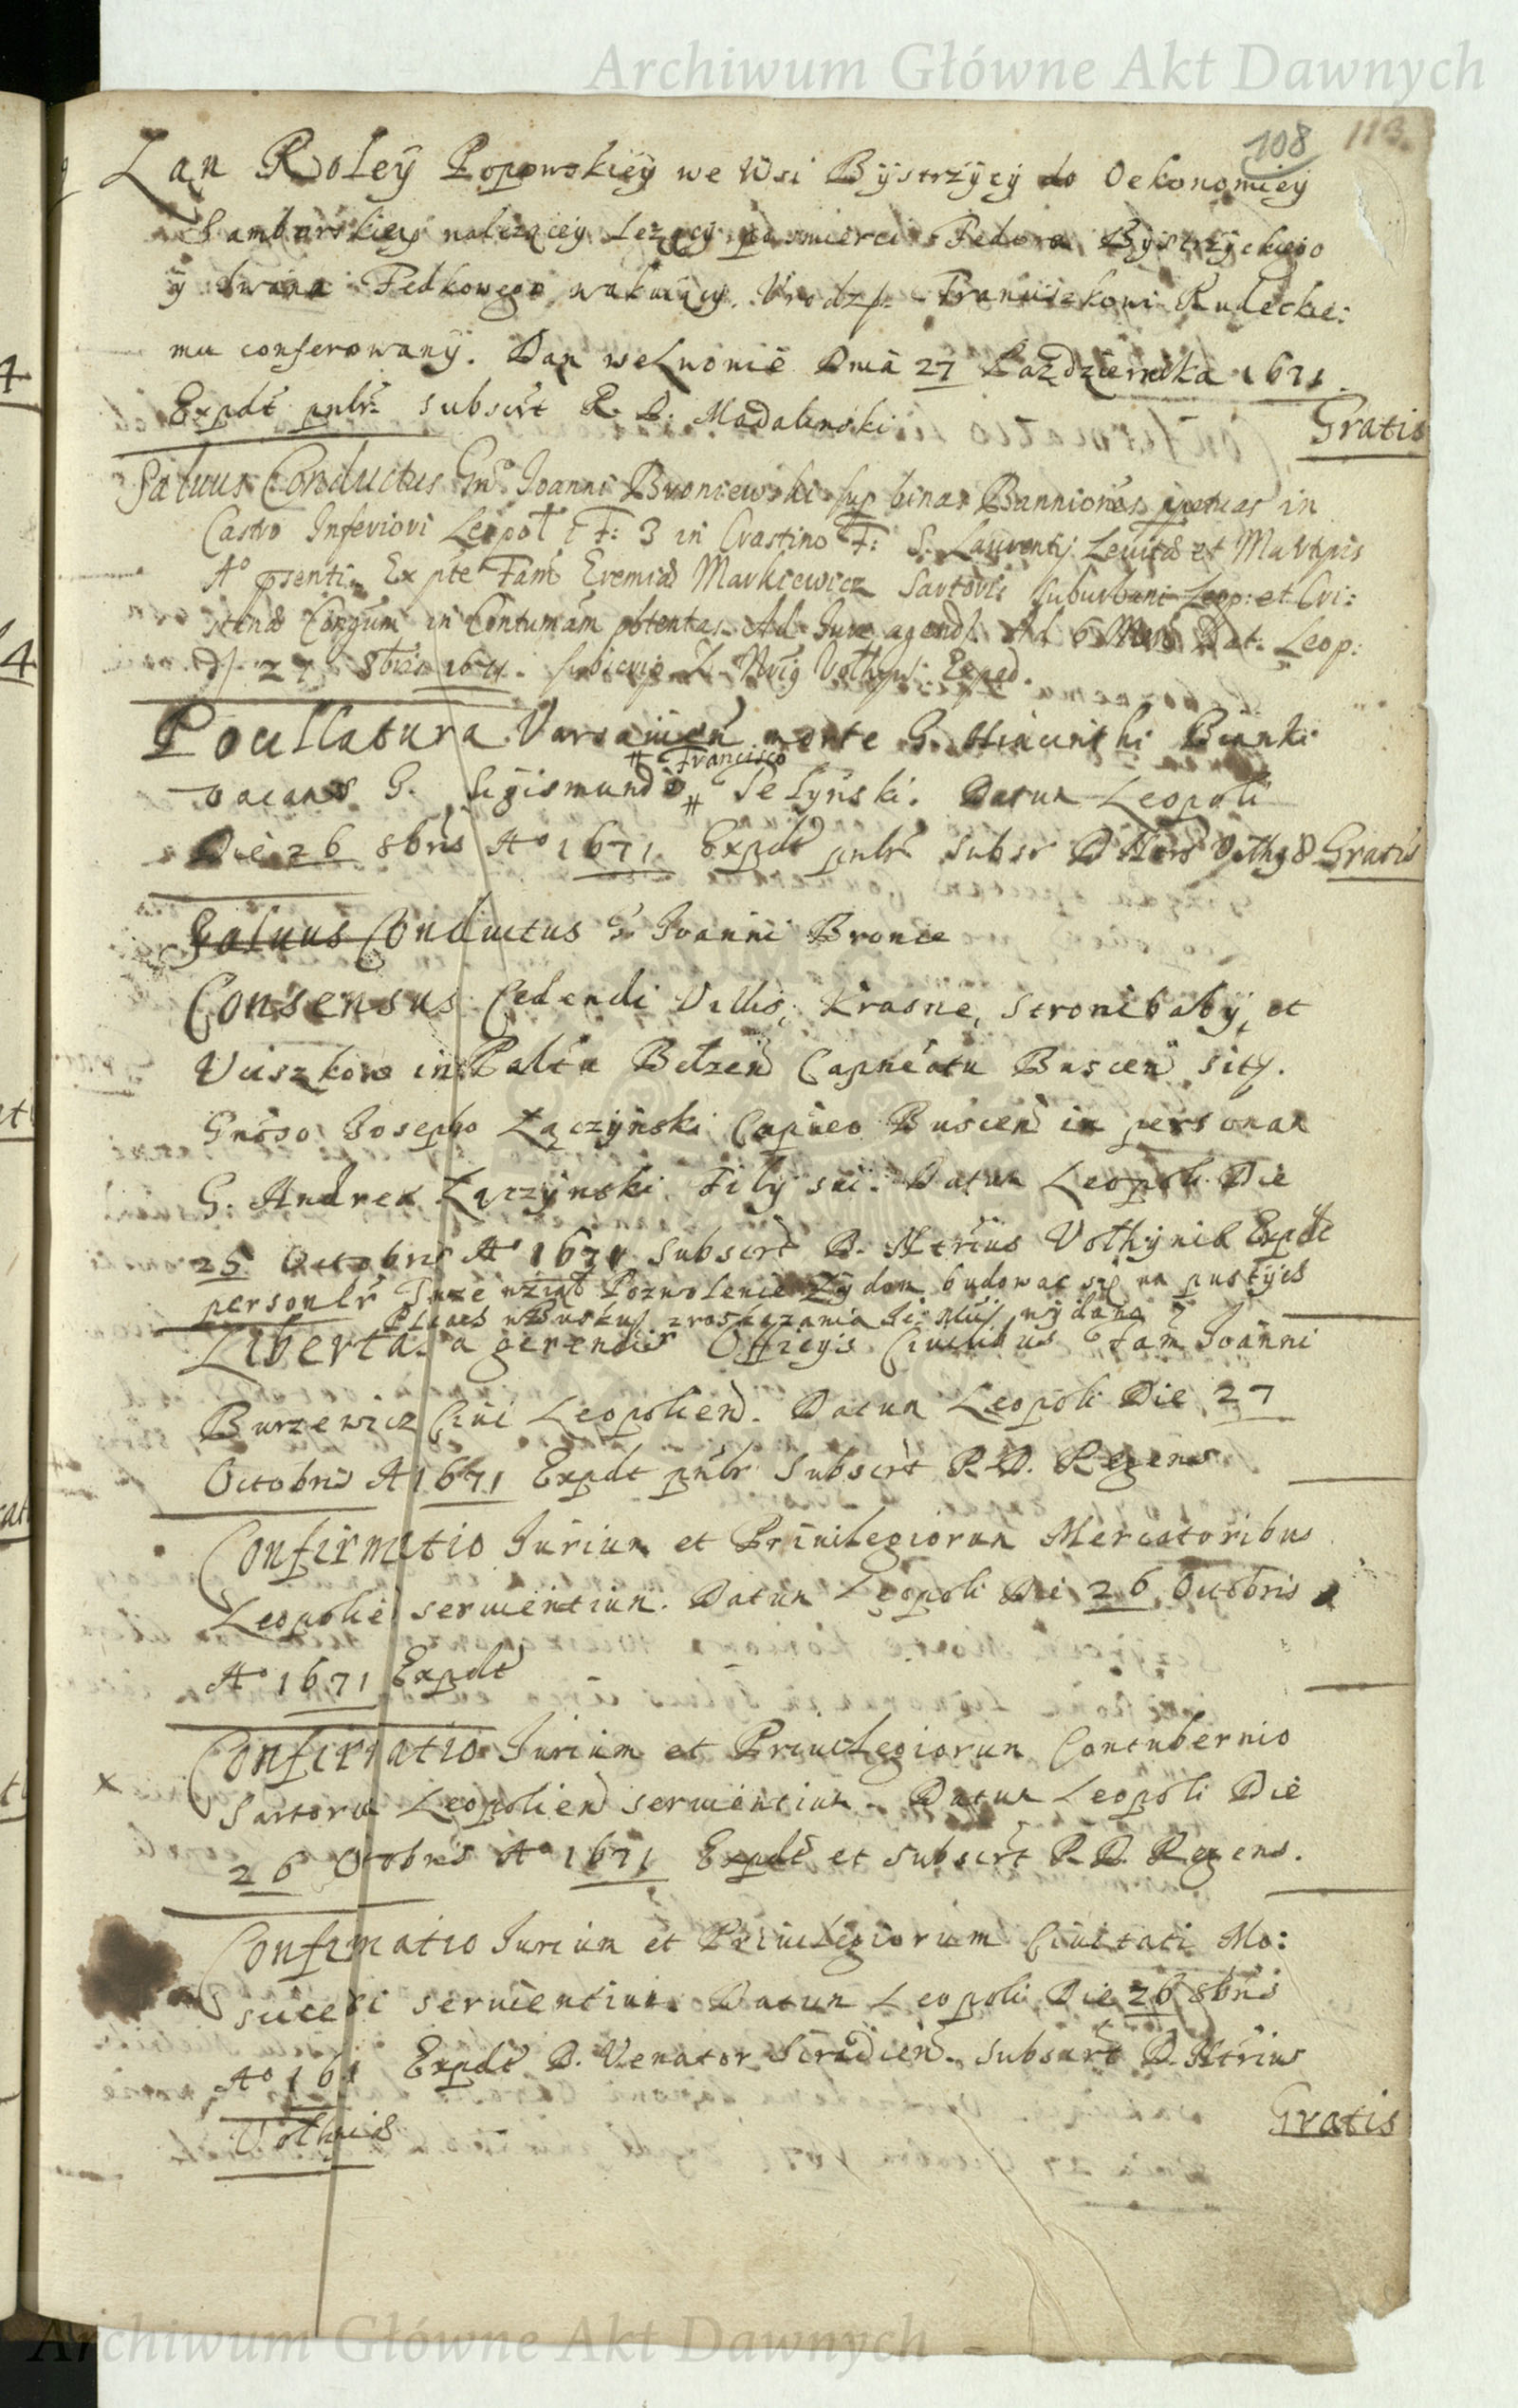 Archiwum Główne Akt Dawnych
108 113
Łan Roley Popowskiey we Wsi Bystrzycy do Oekonomiey
Samborskiey nalezącey lezący po smierci Fedora Bystrzyckiego
y Iwana Fedkowego wakuiący. Vrodz. Franciszkowi Rudeckie:
mu conferowany. Dan we Lwowie Dnia 27 Pazdziernika 1671
Expdt pntr subscrt R. D. Madalinski
Gratis
Saluus Conductus Gnº Joanni Buoniewski sup binas Banniones in
Castro Inferiori Leopol F: 3 in Crastino F: S. Laurentij Leuitæ et Martyris
Aº psenti. Ex pte Fam Eremiæ Markiewicz Sartoris Suburbani Leop: et Cri:
stinæ Congum in Contumam obtentas. Ad Iure agend. Ad 6 Mens Dat. Leop:
D. 27 8bris 1671. Exped.
Pocillatura Varsauien morte G. Hiacinthi Bianki
# Francisco
vacans G. Sigismundo # Selynski. Datum Leopoli
Die 26 8bris Aº 1671 Expdt pntr Subsr D Ntrs Volhyæ Gratis
Saluus Conductus G. Joanni Bronie
Consensus Cedendi Villis, Krasne, Stronibaby, et
Uciszkow in Palta Belzen Capneatu Buscen sitj.
Gnoso Josepho Łączynski Capneo Buscen in personam
G. Andrea Łączynski Filij sui. Datum Leopoli Die
25 Octobris Aº 1671 Subscrt D. Ntrius Volhyniæ Expdt
personlr Tuze wziął Pozwolenie Zydom budowac się na pustych
Placach w Busku z roskazania Je Mści wydane
Libertas a gerendis Officijs Ciuilibus Fam Joanni
Burzewicz Ciui Leopolien. Datum Leopoli Die 27
Octobris A 1671 Expdt pntr Subscrt R. D. Regens
Confirmatio Iurium et Priuilegiorum Mercatoribus
Leopolie seruientium. Datum Leopoli Die 26 Octobris
Aº 1671 Expdt
Confirmatio Iurium et Priuilegiorum Contubernio
x
Sartorum Leopolien seruientium. Datum Leopoli Die
26 Octobris Aº 1671 Expdt et subscrt R. D. Regens.
Confirmatio Iurium et Priuilegiorum Ciuitati Mo:
scicensi seruientium. Datum Leopoli Die 26 8bris
Aº 161 Expdt D. Venator Siradien. Subscrt D. Ntrius
Volhyniæ
Gratis
Archiwum Główne Akt Dawnych